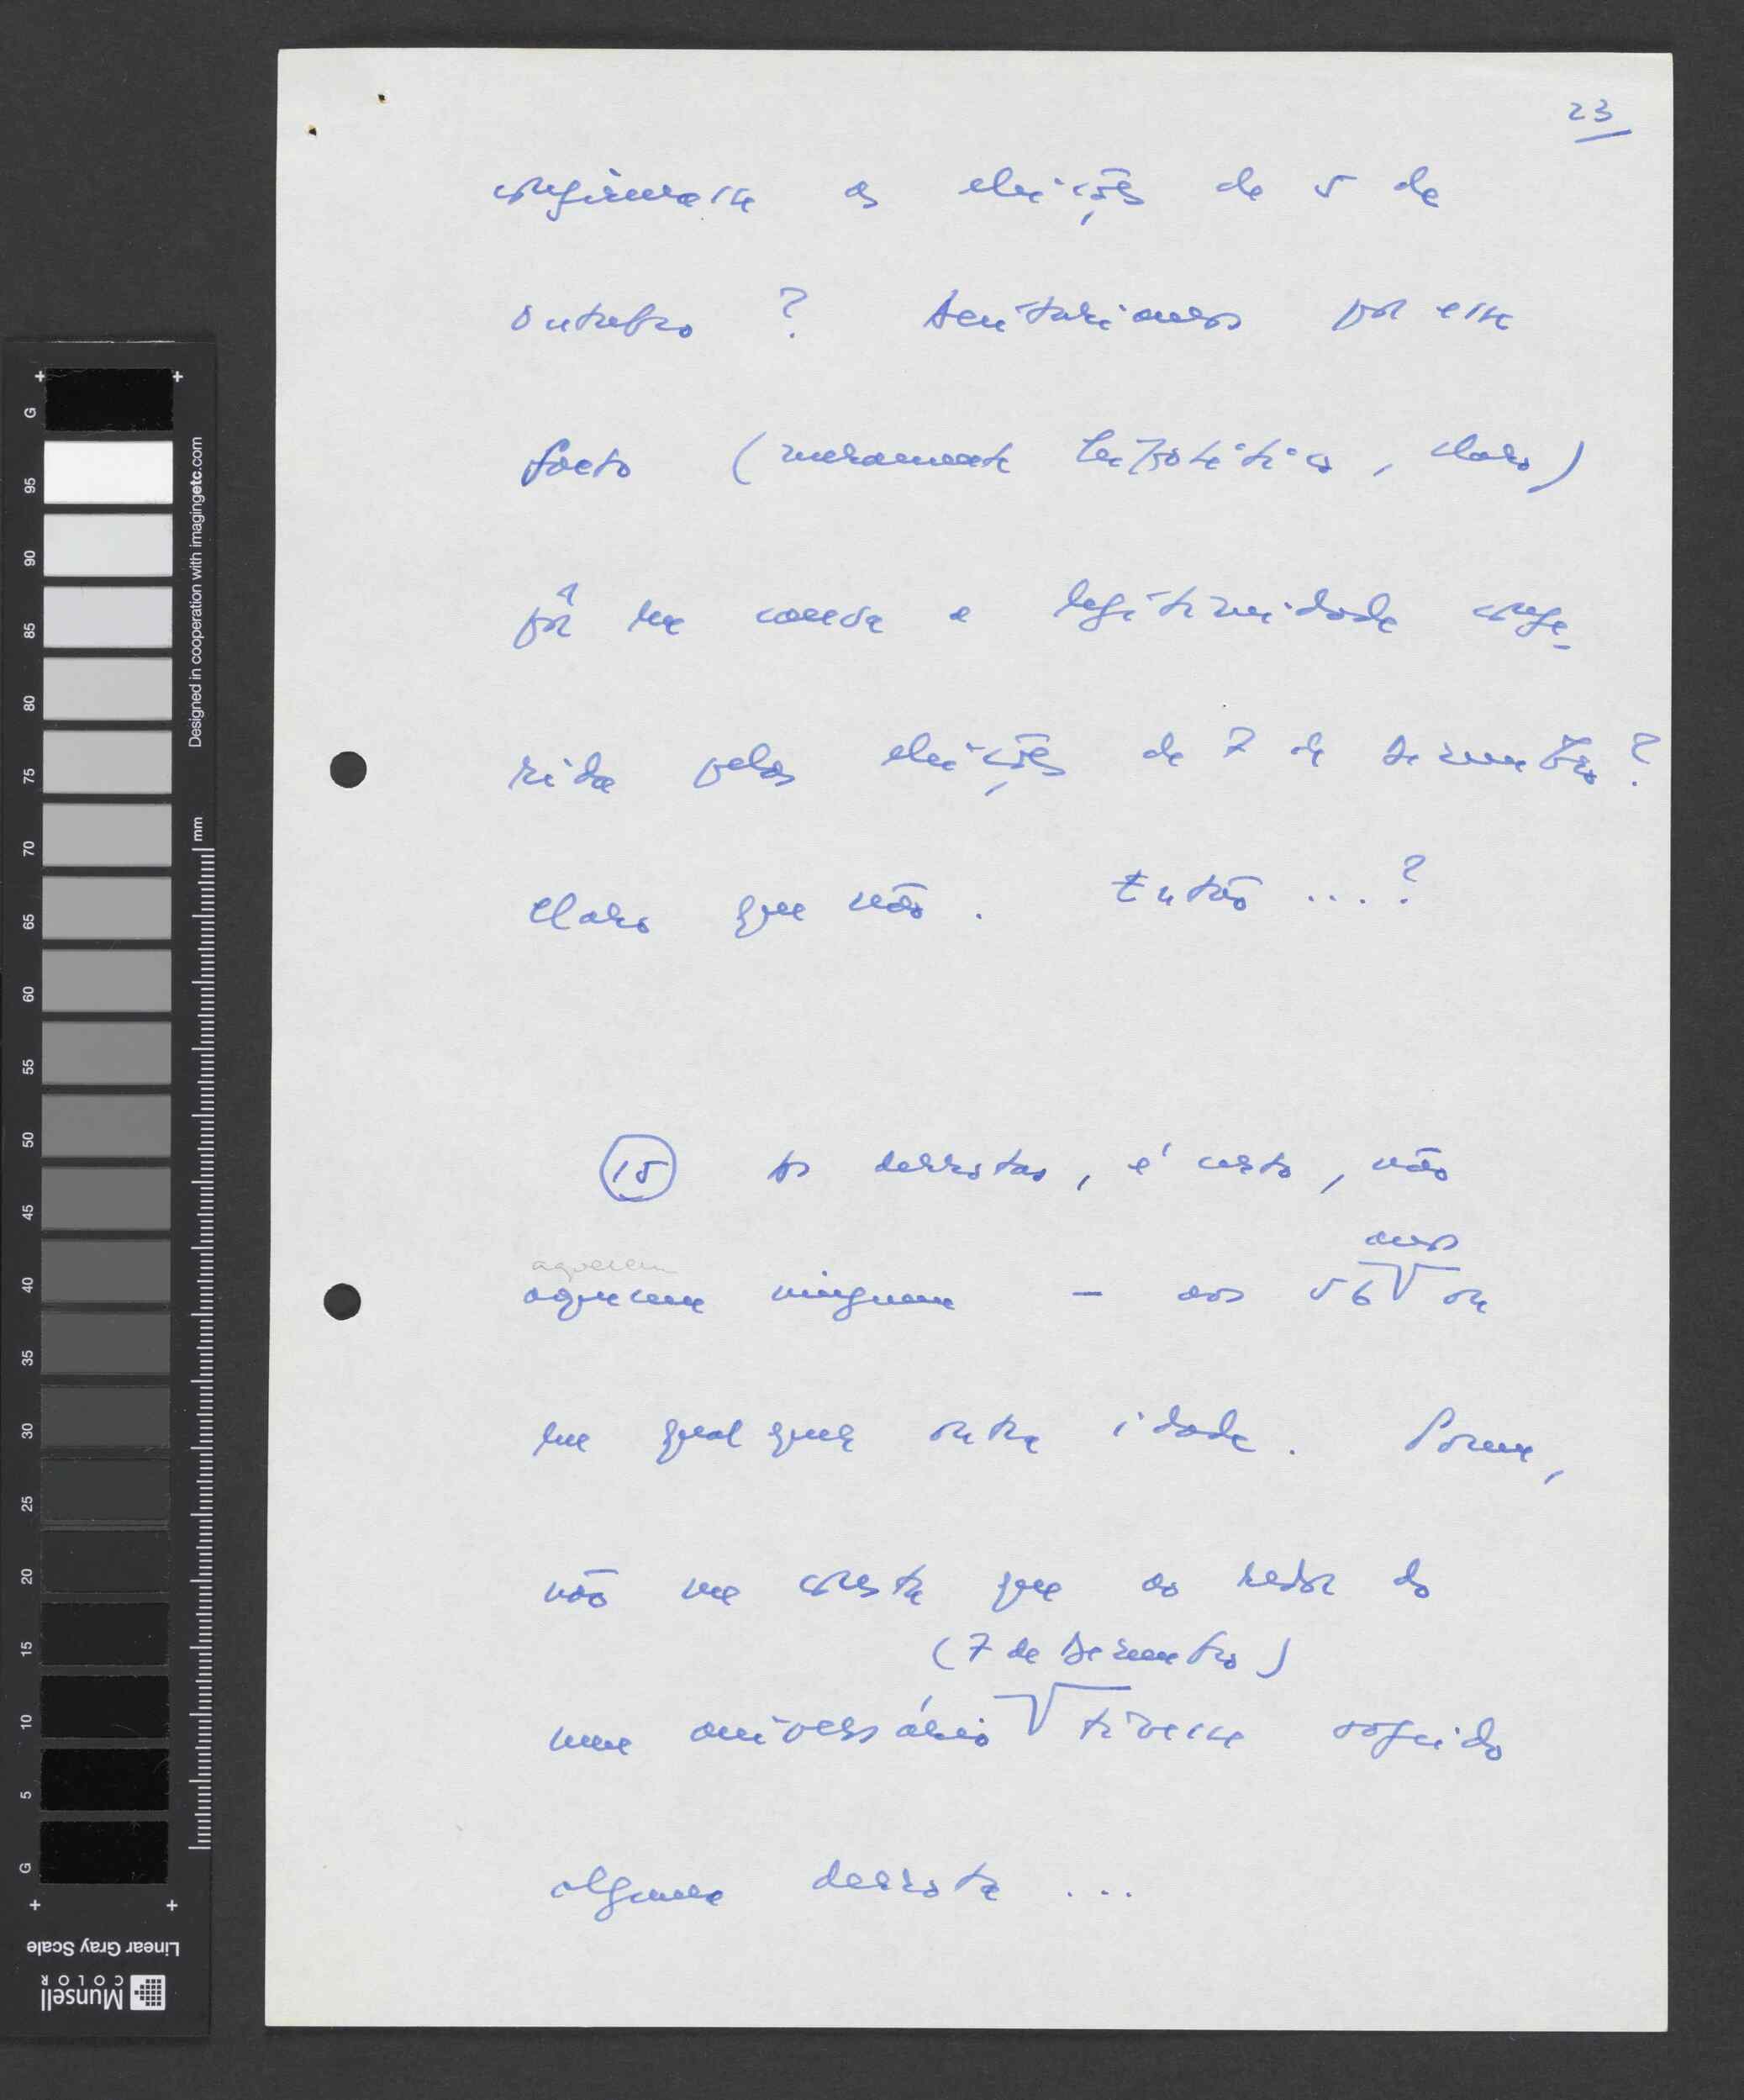 23
confirmasse as eleições de 5 de
Outubro ? Deixaríamos por esse
facto (meramente hipotético, claro)
pôr em causa a legitimidade confe-
rida pelas eleições de 7 de Dezembro ?
Claro que não. Então ....?
15 As derrotas, é certo, não
aquecem
anos
aquecem ninguém - aos 56 ou
em qualquer outra idade. Porém,
não me consta que ao redor do
(7 de Dezembro)
meu aniversário tivesse surgido
alguma derrota ...
G
95
90
85
80
75
70
65
60
55
50
45
40
35
30
25
20
15
10
5
G
Designed in cooperation with imagingetc.com
mm
Linear Gray Scale
Munsell
COLOR